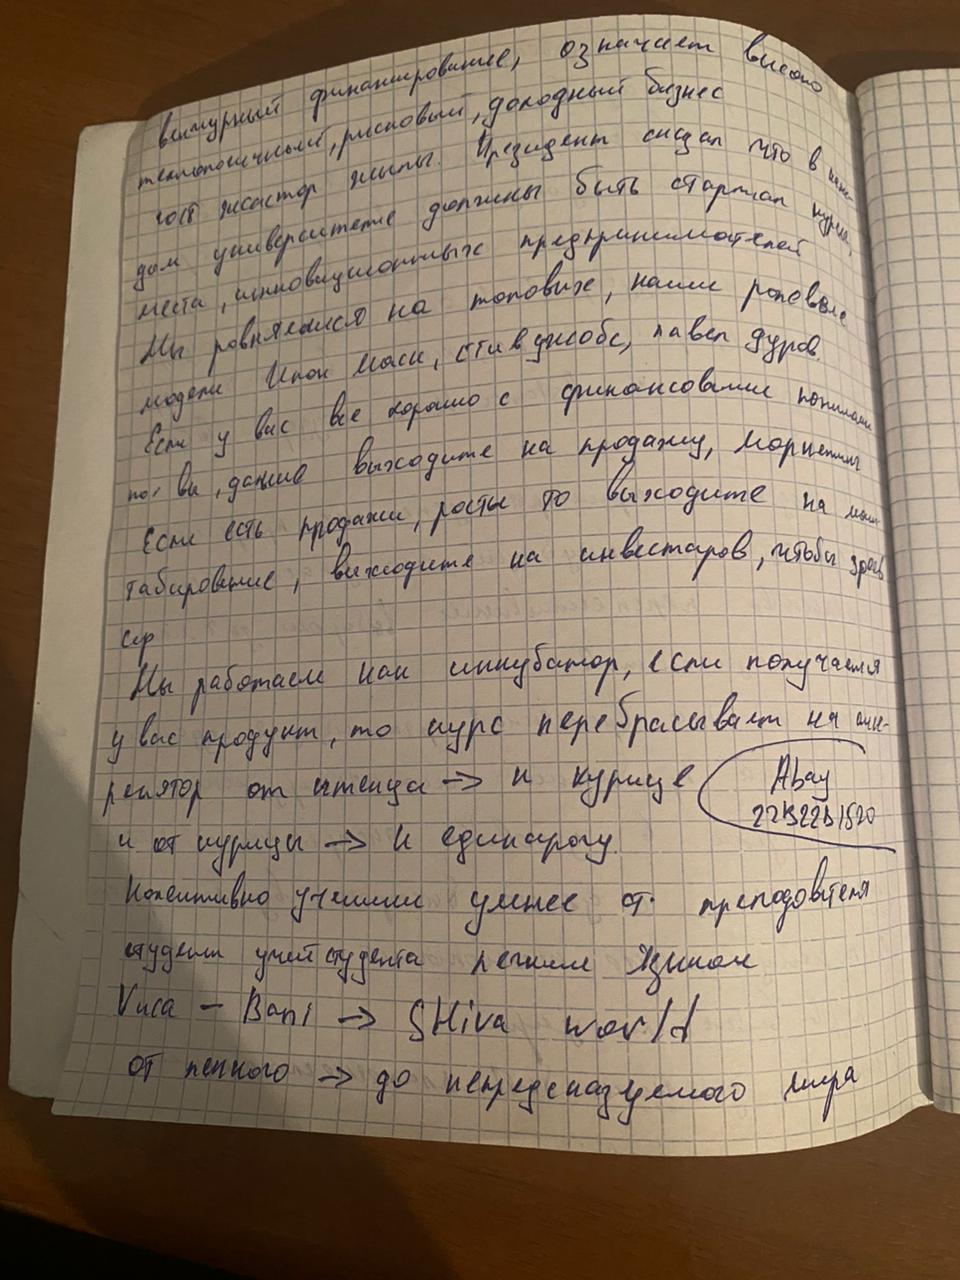 венчурный финансирование, означает высоко
технологичный, рисковый, доходный бизнес
жастар жылы. Президент сказал что в каж-
дом университете должны быть стартап курсы,
места, инновиционных предпринимателей
Мы ровняемся на топовых, наши ролевые
модели Илон Маск, стив джобс, павел дуров.
Если у вас все хорошо с финансовыми
вы, дальше выходите на продажу, маркетинг
Если есть продажи, росты то выходите на мас-
табирование, выходите на инвестаров, чтобы
Мы работаем как инкубатор, если получается
у вас продукт, то курс перебрасывает на аксе-
релятор от птенца → к курице
Abay
22B22B1520
и от курицы → к единарогу.
Колективно учении умнее от преподователя
студент учит студента легким языком
Vuca - Bani → SHiva world
от легкого → до непредсказуемого мира